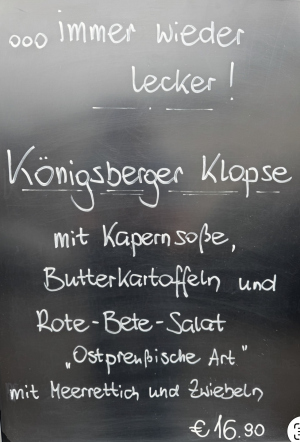 ooo immer wieder
lecker!
Königsberger Klopse
mit Kapernsoße,
Butterkartoffeln und
Rote-Bete-Salat
„Ostpreußische Art"
mit Meerrettich und Zwiebeln
€ 16.90